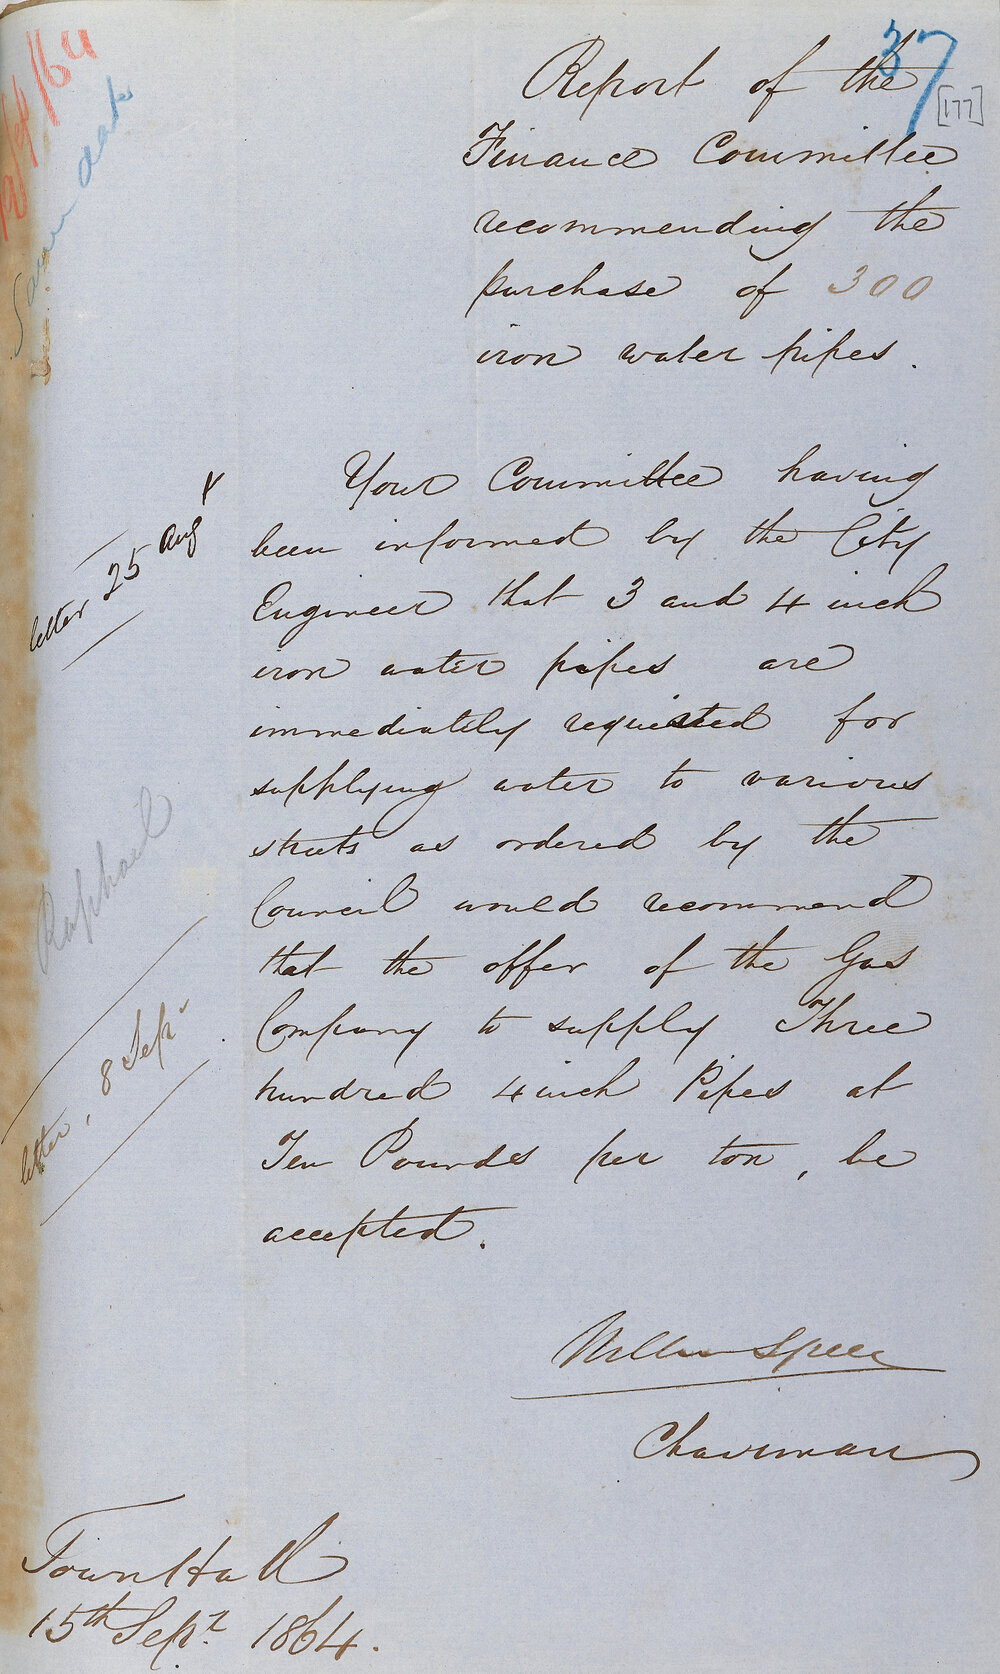 37
[177]
Report of the
Finance Committee
recommending the
purchase of 300
iron water pipes.
Same date
Your Committee having
been informed by the City
Engineer that 3 and 4 inch
iron water pipes are
immediately requested for
supplying water to various
streets as ordered by the
Council would recommend
that the offer of the Gas
Company to supply Three
hundred 4 inch Pipes at
Ten Pounds per ton, be
accepted.
letter 25 Augt
Raphael
letter, 8 Sepr
Speer
Chairman
Town Hall
15th Sepr. 1864.